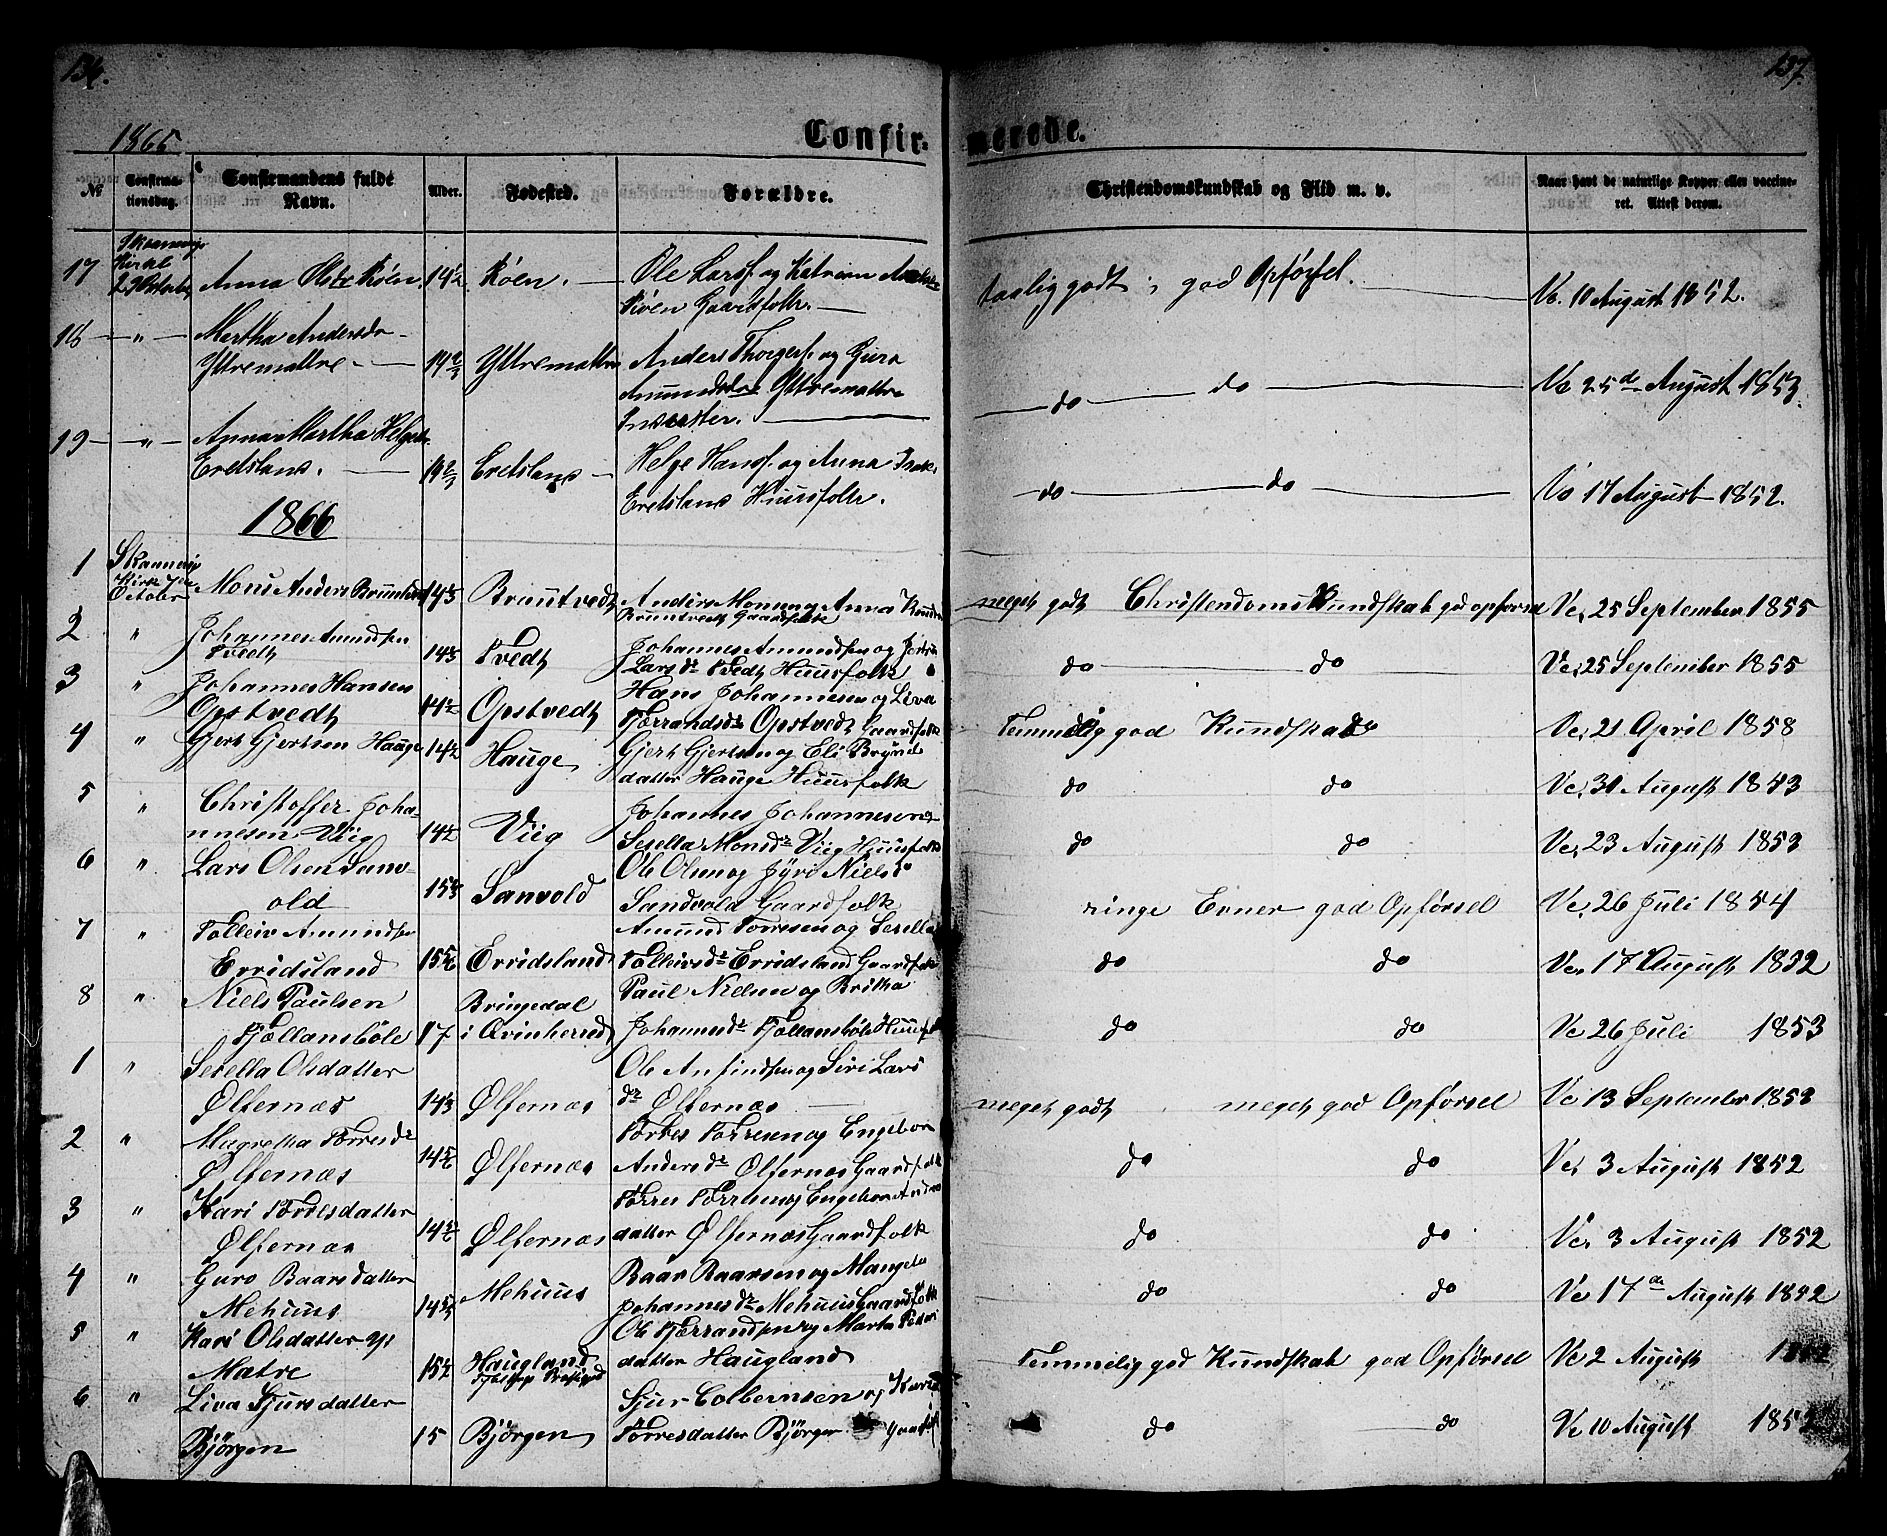 136.
137.
1865
Confir-
merede.
№
Confirma-
tionsdag.
Confirmandens fulde
Navn.
Alder.
Fødested.
Forældre.
Christendomskundskab og Flid m. v.
Naar havt de naturlige Kopper eller vaccine-
ret. Attest derom.
17
Kirke
Anna Olsdr Röen
Röen. —
Ole Larsf. og Katrina
Röen Gaardfolk. —
taalig godt, god Opførsel. —
Ve. 10 August 1852.
18 — „ — Martha Andersdr —
Yttrematre — —
Yttrematre
Anders Thorgersf. og Guro
Amundsdr Yttrematre
Inderster. —
— do — do —
Ve 25de August 1853.
19 — „ — Anna Martha Helgedr.
Eretsland. —
Eretsland —
Helge Hansf. og Anna
Eretsland Huusfolk.
— do — do —
Ve 17 August 1852.
1866
1
Skaanevig
Kirke 7de
October
Mons Anders
Bruntvedt
Anders Mons og Anna
Bruntvedt Gaardfolk
meget godt Christendoms Kundskab god opførsel
Ve, 25 September 1855
2 „ Johannes Amundsen
Tvedt
Tvedt
Johannes Amundsen og
Larsdr Tvedt Huusfolk
do do
Ve, 25 September 1855
3 „ Johannes Hansen
Opstvedt
Opstvedt
Hans Johannesen og Liva
Tjerrandsdr Opstvedt Gaardfolk
Temmelig god Kundskab do
Ve, 21 April 1858
4 „ Gjert Gjertsen Hauge
Hauge
Gjert Gjertsen og Eli Brynild
datter Hauge Huusfolk
do do
Ve, 31 August 1853
5 „ Christoffer Joha-
nnesen Viig
Viig
Johannes Johannesen
Sesella Monsdr Viig Huusfolk
do do
Ve, 23 August 1853
6 „ Lars Olsen Sanv-
old
Sanvold
Ole Olsen og Jyri Nielsdr
Sandvold Gaardfolk
ringe Evner god Opførsel
Ve, 26 Juli 1854
7 „ Tolleiv Amundsen
Erridsland
Erridsland
Amund Torresen og Sesella
Tolleivsdr Erridsland Gaardfolk
do do
Ve, 17 August 1852
8 „ Niels Paulsen
Tjellansböle
17
Bringedal
i Qvinherred
Paul Nielsen og Britha
Johannesdr Tjellansböle Huusfolk
do do
Ve 26 Juli 1853
1 „ Sesella Olsdatter
Ølfernæs
Ølfernæs
Ole Anfindsen og Siri Lars
dr Ølfernæs —
meget godt meget god Opførsel
Ve 13 September 1853
2 „ Magretha Torresdr
Ølfernæs
Ølfernæs
Torres Torresen og Engebor
Andersdr Ølfernæs Gaardfolk
do do
Ve, 3 August 1852
3 „ Kari Torresdatter
Ølfernæs
Ølfernæs
Torres Torresen og Engebor Anders
datter Ølfernæs Gaardfolk
do do
Ve, 3 August 1852
4 „ Guro Baarsdatter
Mehuus
Mehuus
Baar Baarsen og Mangela
Johannesdr Mehuus Gaardfolk
do do
Ve 17de August 1852
5 „ Kari Olsdatter
Matre
Haugland
Ole Tjerrandsen og Marta
datter Haugland
Temmelig god Kundskab god Opførsel
Ve 2 August
6 „ Liva Sjursdatter
Bjørgen
15
Bjørgen
Sjur Colbeinsen og
Torresdatter Bjørgen
do do
Ve 10 August 1852